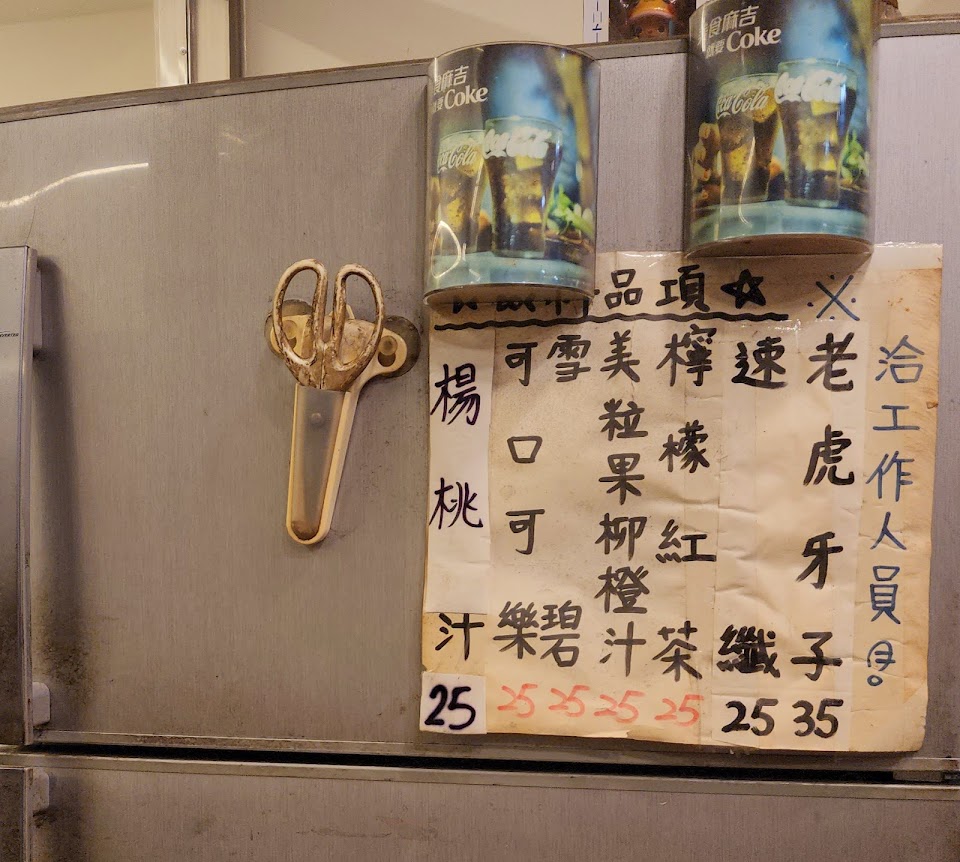 食麻吉
Coke
Coca-Cola
Coca-Cola
食麻吉
Coke
Coca-Cola
Coca-Cola
品項☆
※洽工作人員
老虎牙子 35
速纖 25
檸檬紅茶 25
美粒果柳橙汁 25
雪碧 25
可口可樂 25
楊桃汁 25